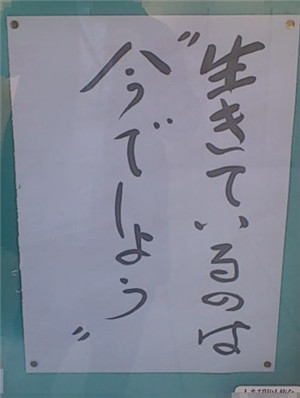 〝生きているのは
今でしょう〟